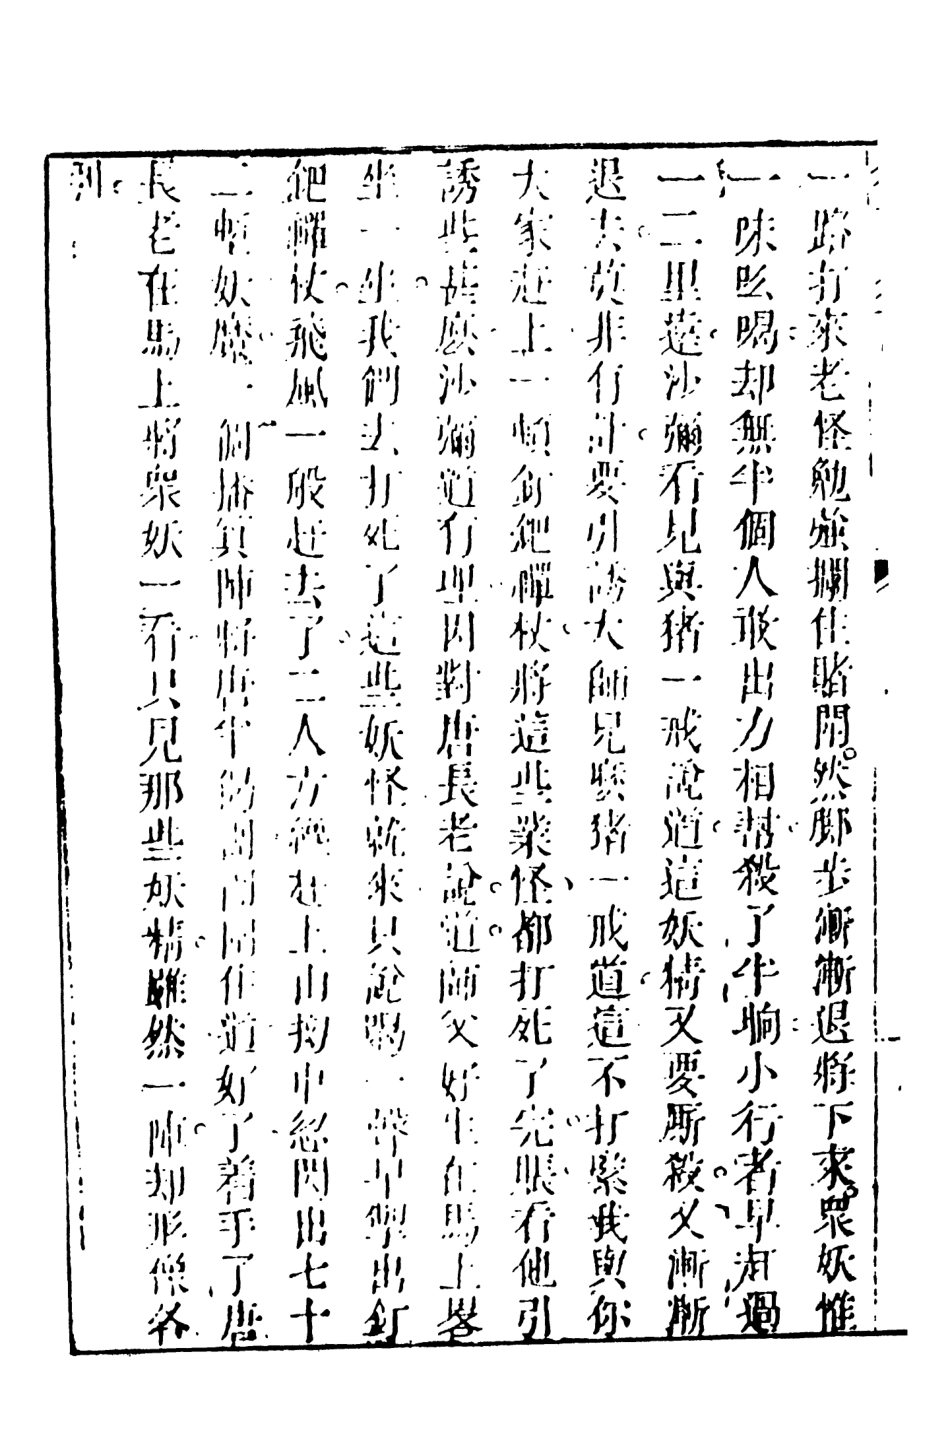 一路打來老怪勉強攔住賭鬬然脚步漸漸退將下來衆妖惟
一味吆喝却無半個人敢出力相幫殺了半晌小行者早有過
一二里遠沙彌看見與猪一戒說道這妖精又要厮殺又漸漸
退去莫非行計要引誘大師兄猪一戒道這不打緊我與你
大家趕上一頓釘鈀禪杖將這些業怪都打死了完賬看他引
誘些甚麽沙彌道有理因對唐長老說道師父好生在馬上略
坐一坐我們去打死了這些妖怪就來只說得一聲早掣出釘
鈀禪杖飛風一般赶去了二人方纔赶上山拗中忽閃出七十
二頓妖魔一個播箕陣將唐半偈團團圍住道好了着手了唐
長老在馬上將衆妖一看只見那些妖精雖然一陣却形像各
別